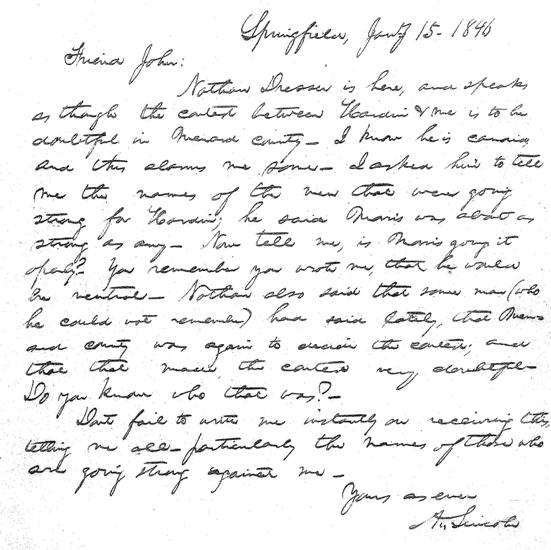 Springfield, Jany 15- 1846
Friend John:
Nathan Dresser is here, and speaks
as though the contest between Hardin & me is to be
doubtful in Menard county- I know he is candid
and this alarms me some- I asked him to tell
me the names of the men that were going
strong for Hardin; he said Morris was about as
strong as any- Now tell me, is Morris going it
openly? You remember you wrote me, that he would
be neutral- Nathan also said that some man (who
he could not remember) had said lately, that Men-
ard county was again to decide the contest; and
that that made the contest very doubtful-
Do you know who that was?-
Dont fail to write me instantly on receiving this,
telling me all- particularly the names of those who
are going strong against me-
Yours as ever
A. Lincoln